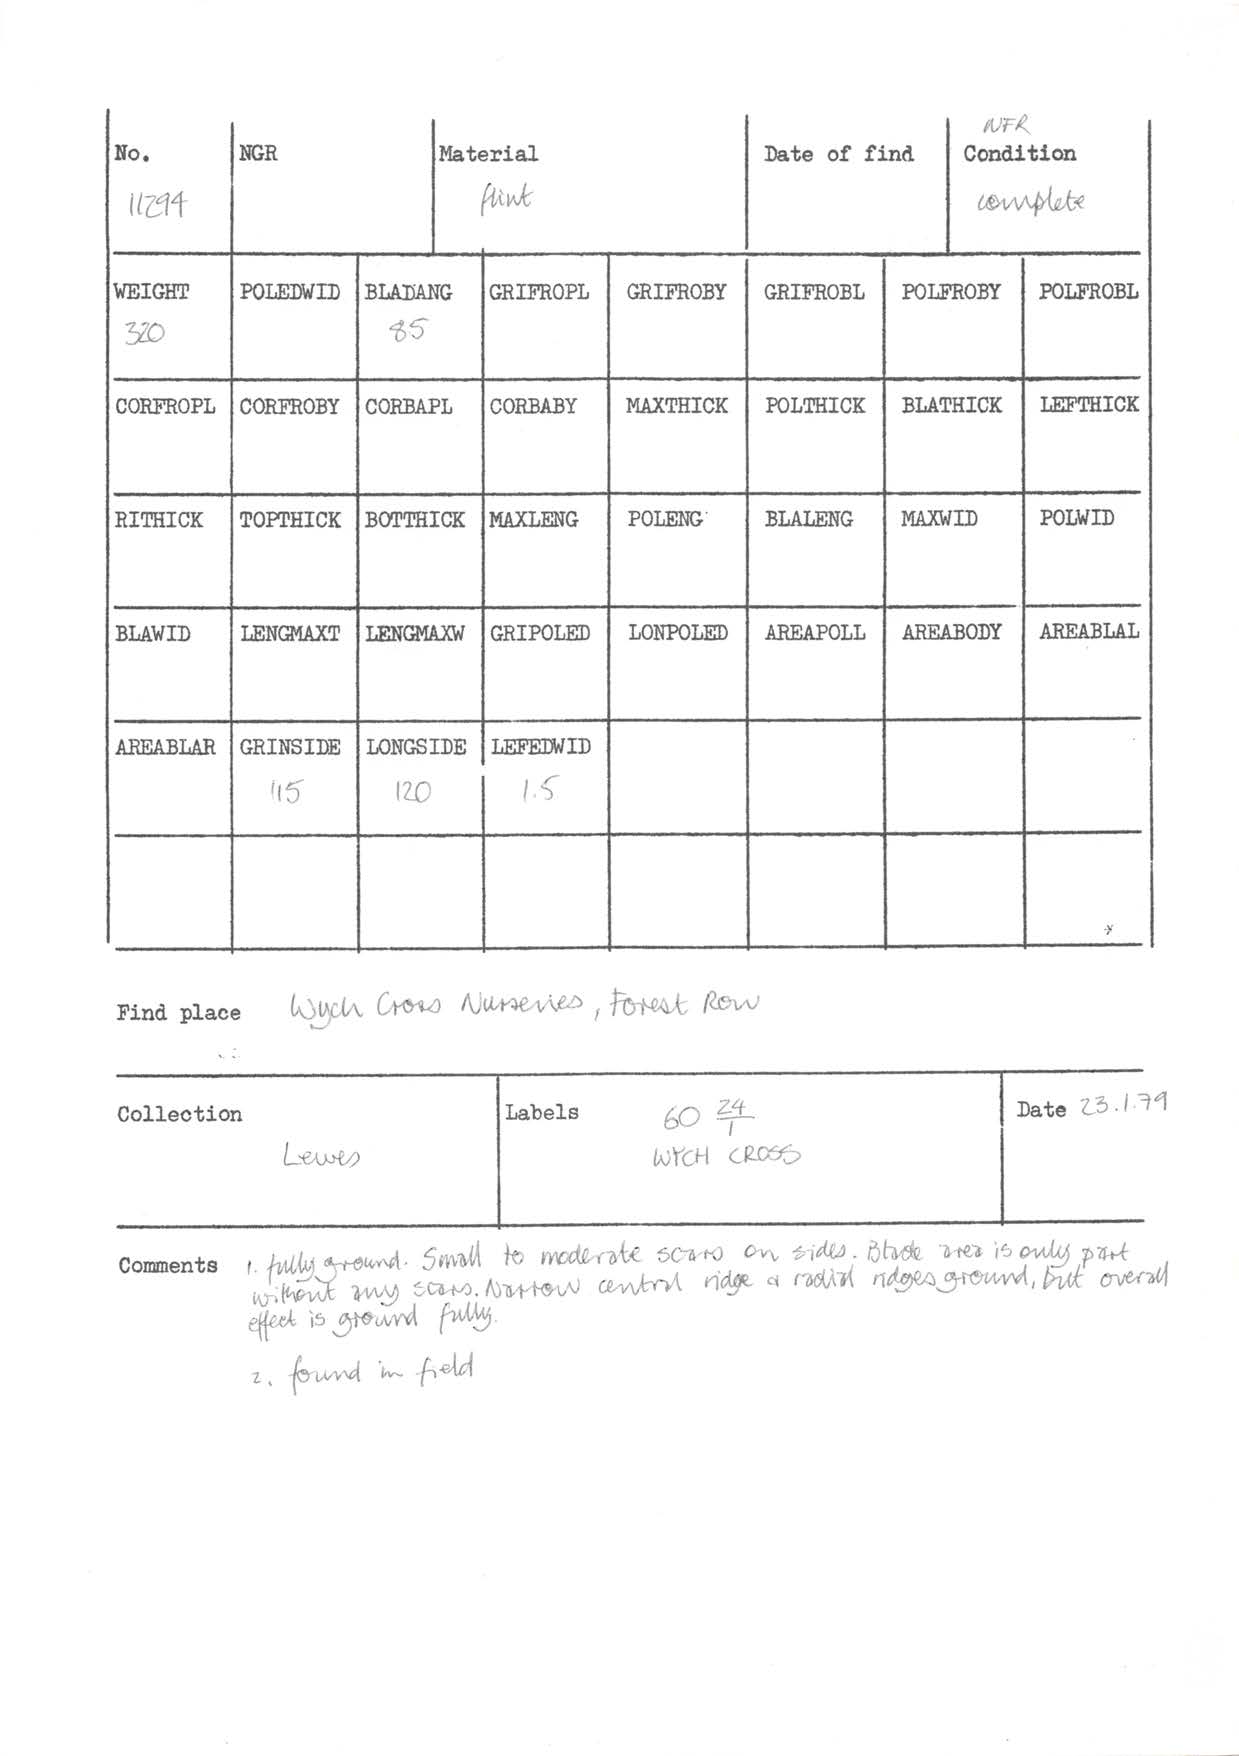 NFR
No. NGR Material Date of find Condition
11294 flint complete
WEIGHT POLEDWID BLADANG GRIFROPL GRIFROBY GRIFROBL POLFROBY POLFROBL
320 85
CORFROPL CORFROBY CORBAPL CORBABY MAXTHICK POLTHICK BLATHICK LEFTHICK
RITHICK TOPTHICK BOTTHICK MAXLENG POLENG BLALENG MAXWID POLWID
BLAWID LENGMAXT LENGMAXW GRIPOLED LONPOLED AREAPOLL AREABODY AREABLAL
AREABLAR GRINSIDE LONGSIDE LEFEDWID
115 120 1.5
Find place Wych Cross Nurseries, Forest Row
Collection Labels 60 24/1 Date 23.1.79
Lewes WYCH CROSS
Comments 1. fully ground. Small to moderate scars on sides. Blade area is only part
without any scars. Narrow central ridge & radial ridges ground, but overall
effect is ground fully.
2. found in field